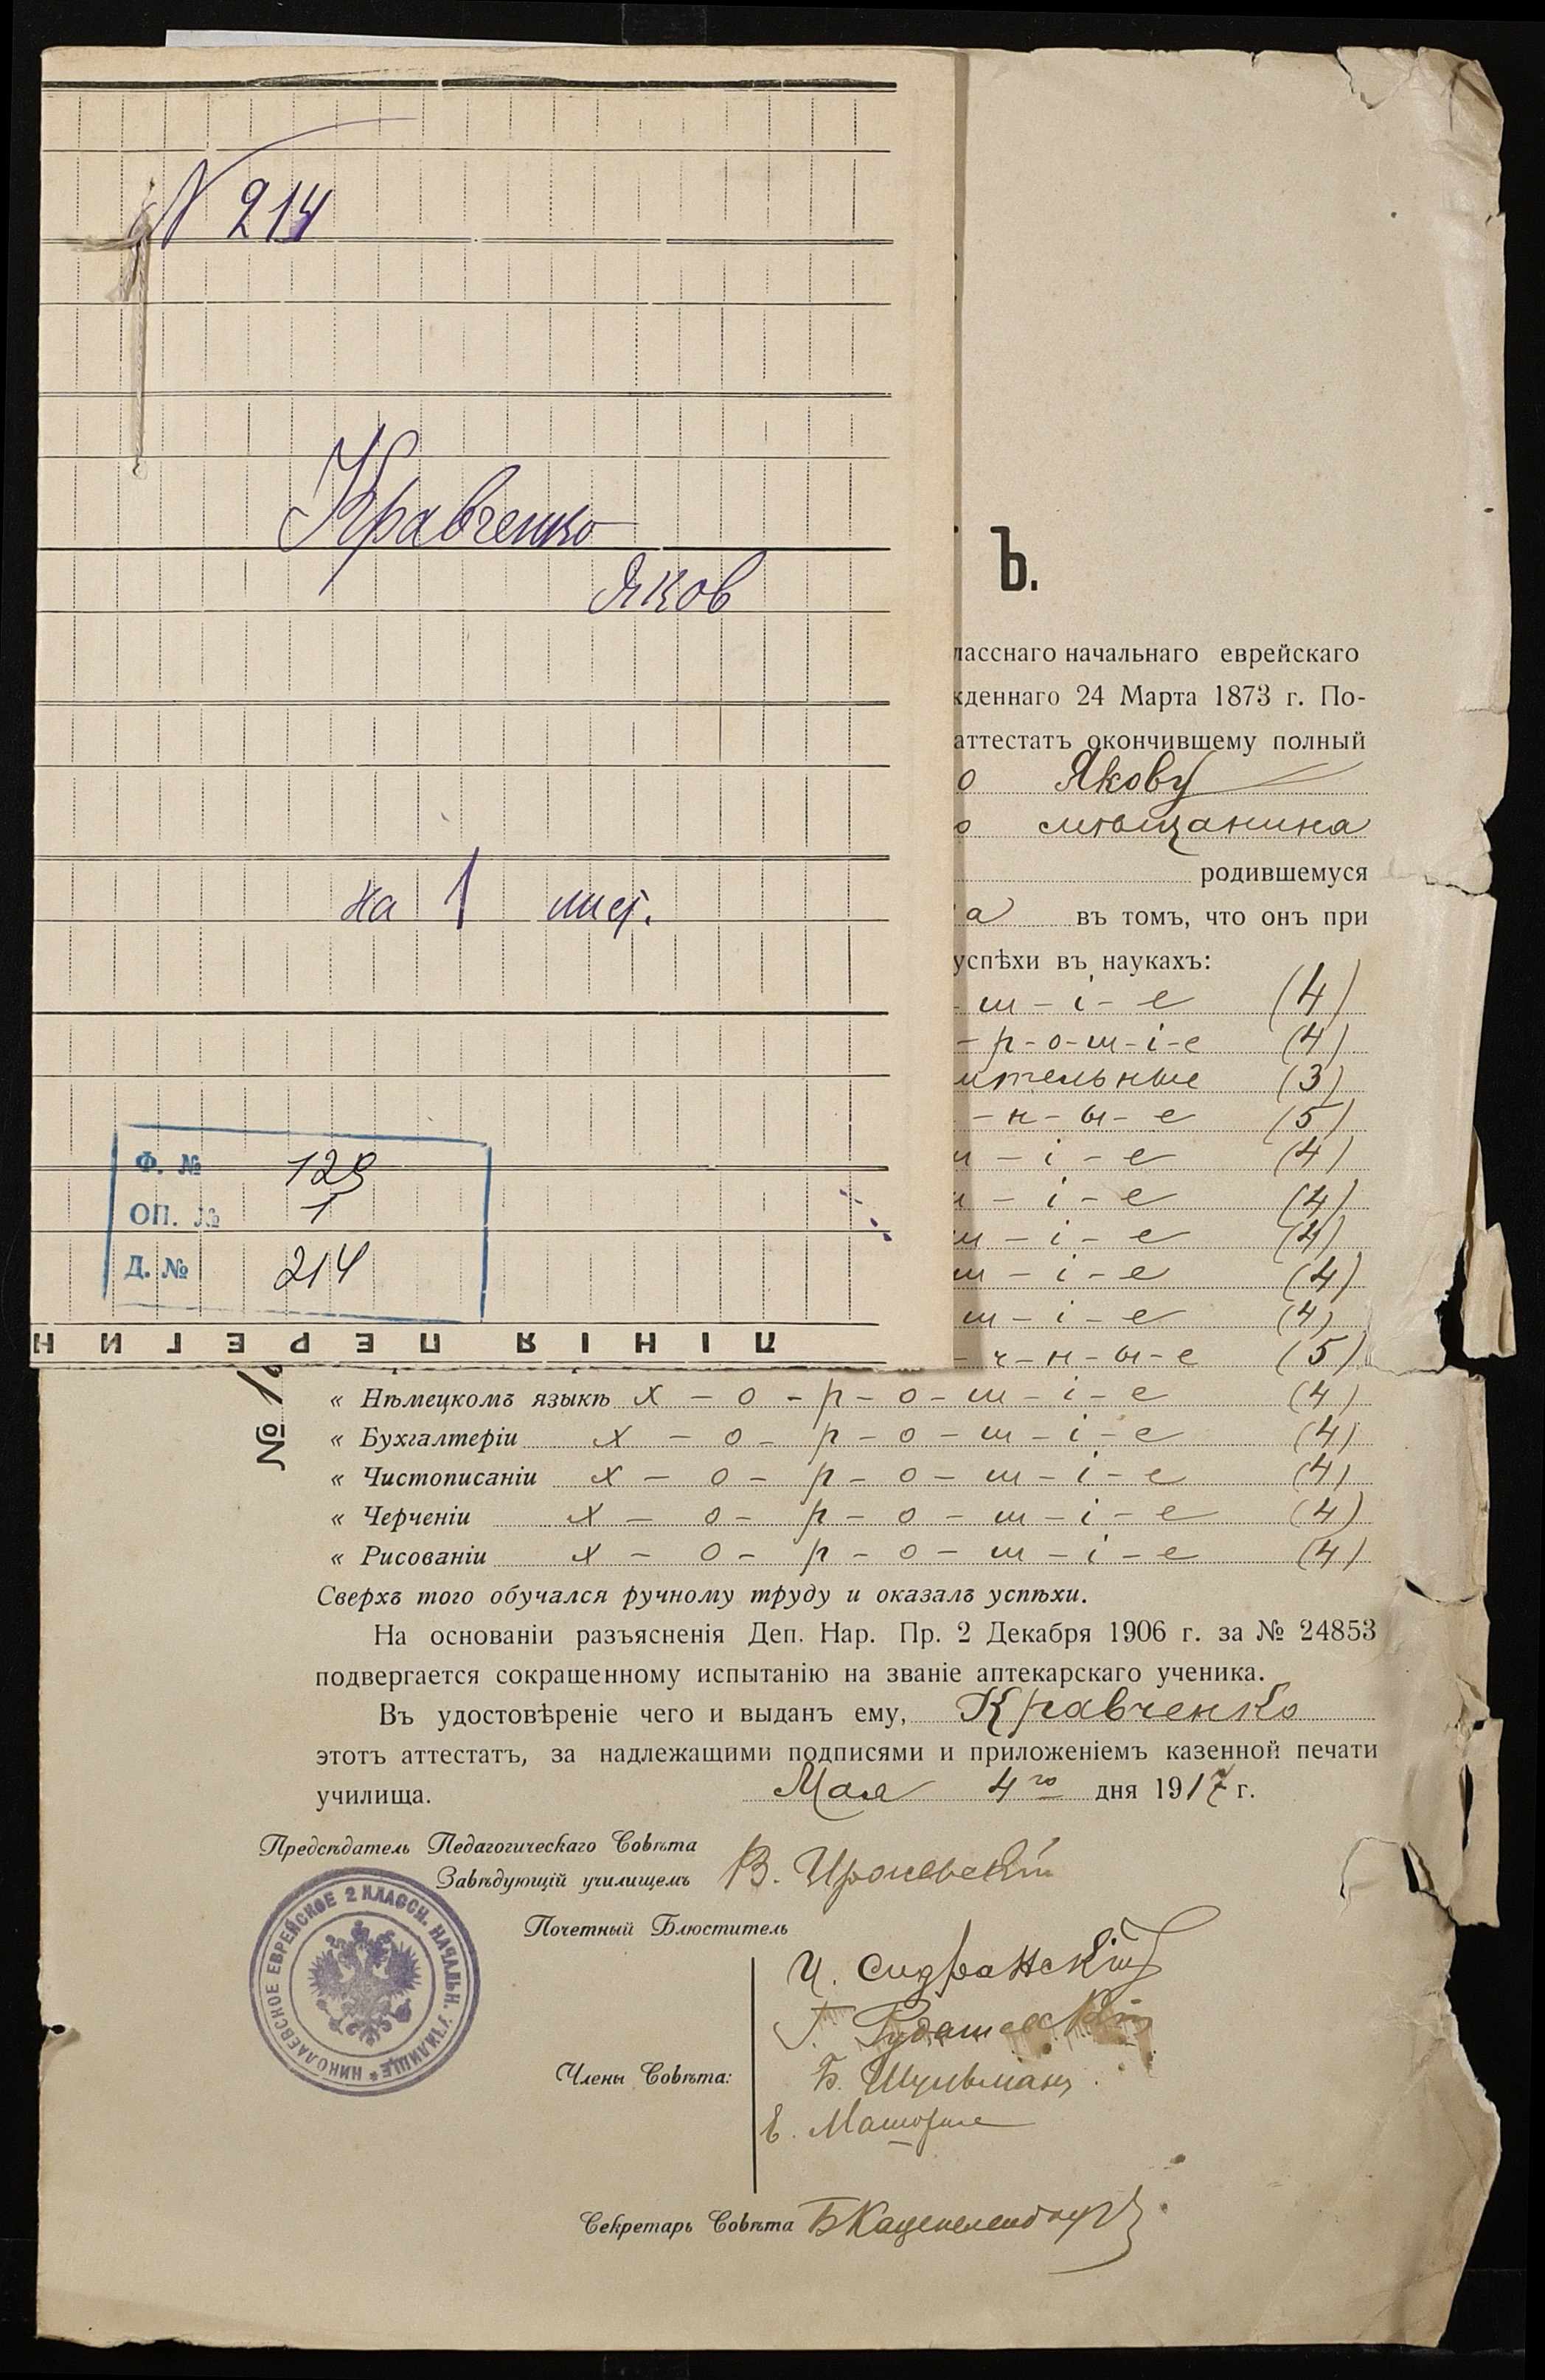 N 214
Кравченко
Яков
на 1 лист.
Ф. № 129
ОП. № 1
Д. № 214
ЛІНІЯ ПЕРЕГИН
Ъ.
ласснаго начальнаго еврейскаго
жденнаго 24 Марта 1873 г. По-
аттестатъ окончившему полный
о Якову
о мѣщанина
родившемуся
а въ томъ, что онъ при
успѣхи въ наукахъ:
ш-і-е (4)
-р-о-ш-і-е (4)
ительные (3)
-н-ы-е (5)
ш-і-е (4)
ш-і-е (4)
ш-і-е (4)
ш-і-е (4)
ш-і-е (4)
-ч-н-ы-е (5)
№ 1
« Нѣмецкомъ языкѣ х-о-р-о-ш-і-е (4)
« Бухгалтеріи х-о-р-о-ш-і-е (4)
« Чистописаніи х-о-р-о-ш-і-е (4)
« Черченіи х-о-р-о-ш-і-е (4)
« Рисованіи х-о-р-о-ш-і-е (4)
Сверхъ того обучался ручному труду и оказалъ успѣхи.
На основаніи разъясненія Деп. Нар. Пр. 2 Декабря 1906 г. за № 24853
подвергается сокращенному испытанію на званіе аптекарскаго ученика.
Въ удостовѣреніе чего и выданъ ему, Кравченко
этотъ аттестатъ, за надлежащими подписями и приложеніемъ казенной печати
училища. Мая 4го дня 1917 г.
Предсѣдатель Педагогическаго Совѣта
Завѣдующій училищемъ В.
Почетный Блюститель
Члены Совѣта:
Г. Рудашевскій
Б. Шульманъ
Е.
Секретарь Совѣта Б Каценеленбогенъ
НИКОЛАЕВСКОЕ ЕВРЕЙСКОЕ 2 КЛАССН. НАЧАЛЬН. УЧИЛИЩЕ *